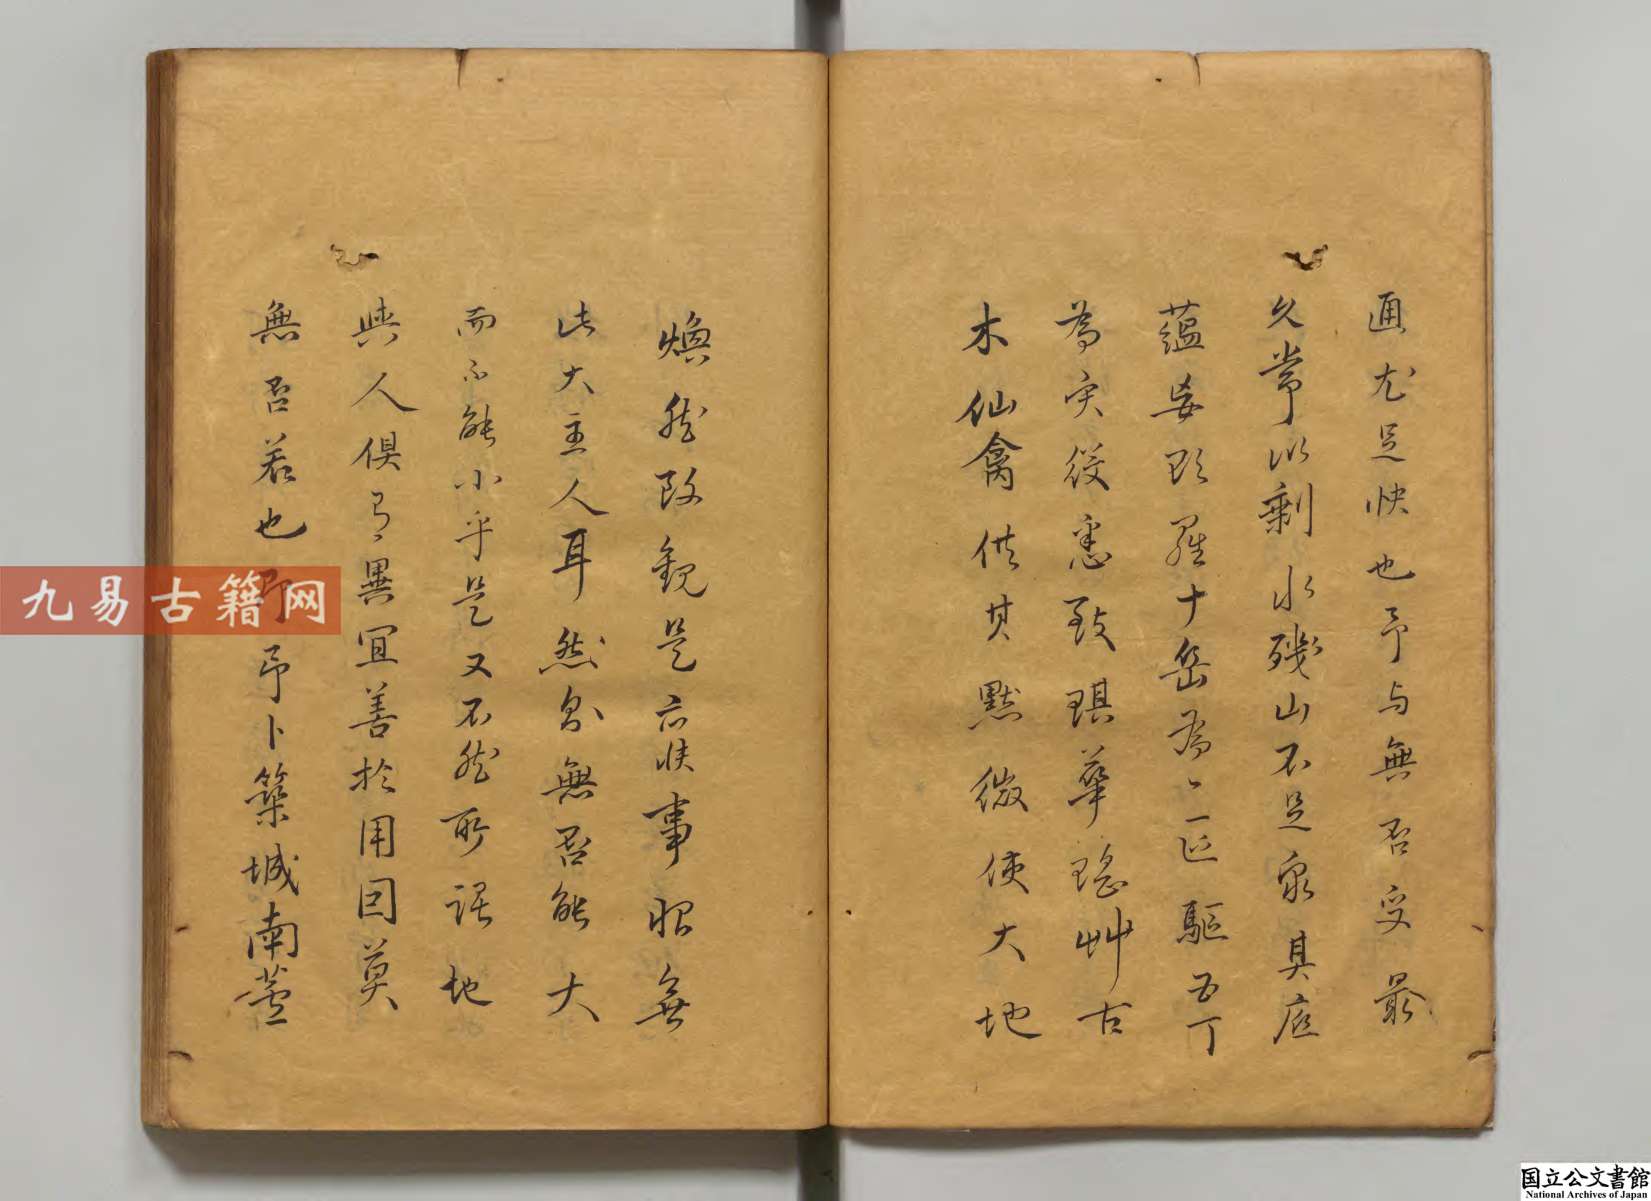 通尤足快也予与無否交最
久常以剩水殘山不足窮其底
蘊妄欲羅十岳為一區驅五丁
為衆役悉致琪華瑤艸古
木仙禽供其點綴使大地
煥然改觀是亦快事恨無
此大主人耳然則無否能大
而不能小乎是又不然所謂地
與人俱有異宜善於用因莫
無否若也即予卜築城南蘆
九易古籍网
国立公文書館
National Archives of Japan